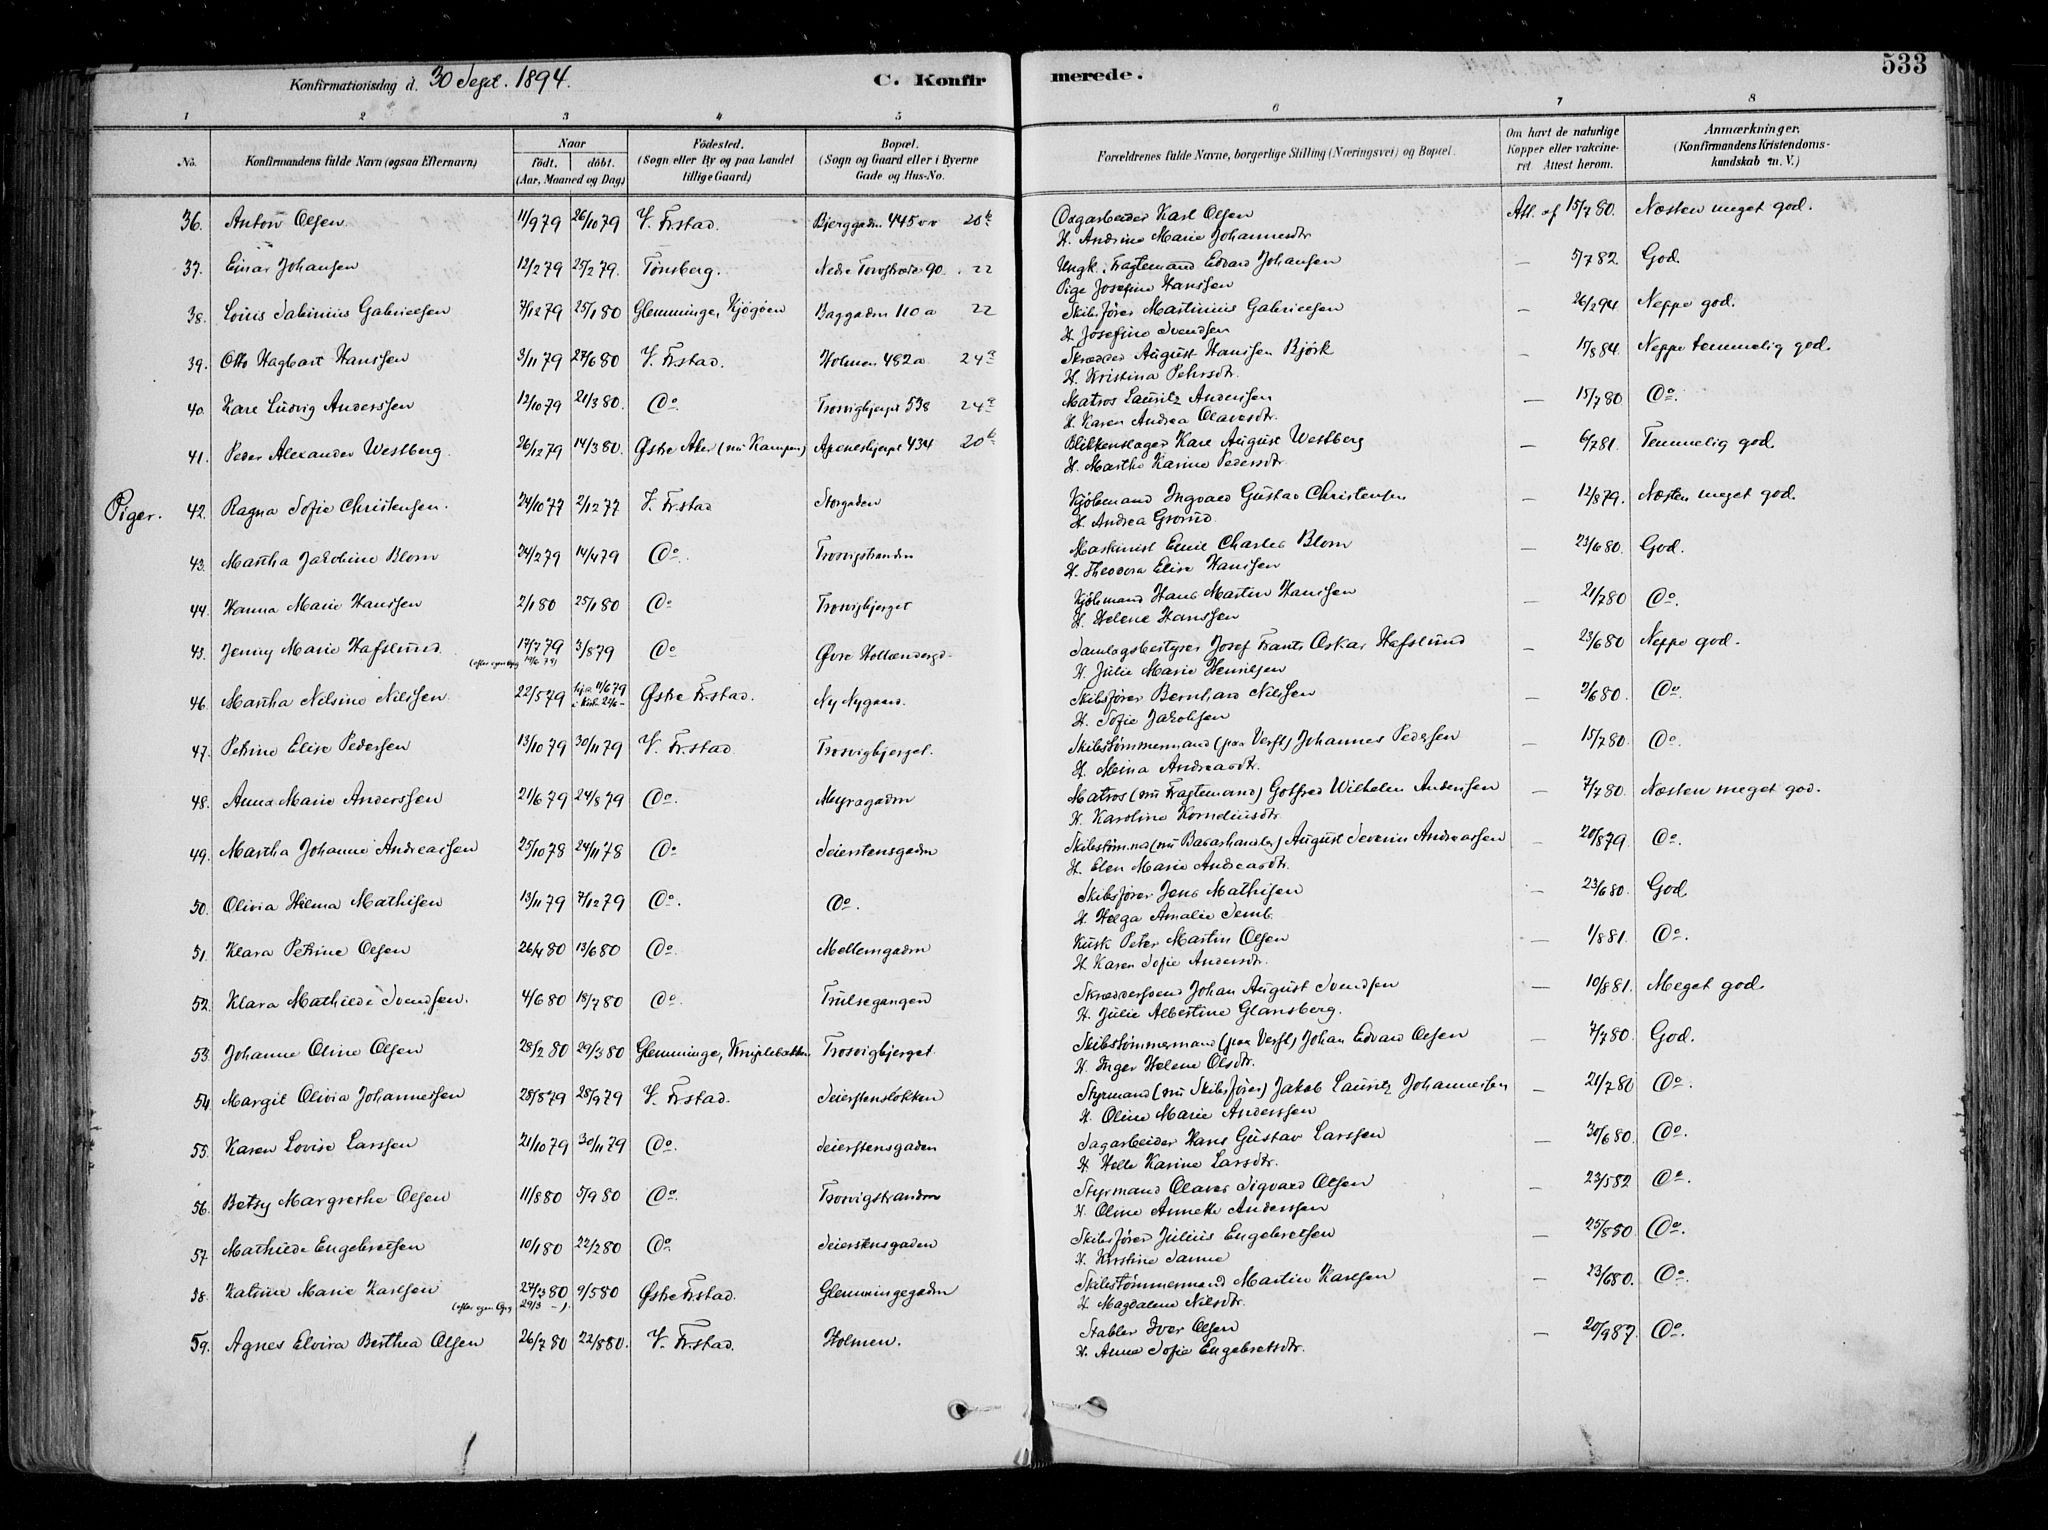 533
Konfirmationsdag d. 30 Sept. 1894. C. Konfirmerede.
1 2 3 4 5 6 7 8
No. Konfirmandens fulde Navn (ogsaa Efternavn) Naar født. døbt. (Aar, Maaned og Dag) Fødested. (Sogn eller By og paa Landet tillige Gaard) Bopæl. (Sogn og Gaard eller i Byerne Gade og Hus-No. Forældrenes fulde Navne, borgerlige Stilling (Næringsvei) og Bopæl. Om havt de naturlige Kopper eller vakcineret Attest herom. Anmærkninger. (Konfirmandens Kristendomskundskab m. V.)
36. Anton Olsen 11/9 79 26/10 79 V. Fr.stad. Bjerggadn. 445 20 b Karl Olsen Att. af 15/7 80. Næsten meget god.
H. Andrine Marie Johannesdtr
37. Einar Johansen 12/2 79 25/2 79. Tønsberg. Nedre 90. 22 Ungk. Fragtemand Edvard Johansen — 5/7 82. God.
Pige Josefine Hanssen
38. Louis Sabinius Gabrielsen 7/12 79 25/1 80 Glemminge, Kjøgøen Baggadn 110 a 22 Skibsfører Martinius Gabrielsen — 26/2 94. Neppe god.
H. Josefine Svendsen
39. Otto Hagbart Hanssen 3/11 79 27/6 80 V. Fr.stad. Holmen 482a 24 a Skrædder August Hanssen Bjørk — 15/8 84. Neppe temmelig god.
H. Kristina Pehrsdtr.
40. Karl Ludvig Anderssen 12/10 79 21/3 80. Do. Trosvigbjerget 538 24 a Matros Lauritz Anderssen — 15/7 80 Do.
H. Karen Andrea Olavesdtr.
41. Peder Alexander Westberg. 26/12 79 14/3 80. Østre Aker (nu Kampen) Apenesbjerget 434 20 b Blikkenslager Karl August Westberg — 6/7 81. Temmelig god.
H. Marthe Karine Pedersdtr.
Piger. 42. Ragna Sofie Christensen. 24/10 77 2/12 77 V. Fr.stad Storgaden Kjøbmand Ingvald Gustav Christensen — 12/8 79. Næsten meget god.
H. Andrea Grorud.
43. Martha Jakobine Blom 24/2 79 14/4 79 Do. Trosvigstranden Maskinist Emil Charles Blom — 23/6 80. God.
H. Theodora Elise Hanssen
44. Hanna Marie Hanssen 2/1 80 25/1 80 Do Trosvigbjerget Kjøbmand Hans Martin Hanssen — 21/7 80 Do.
H. Helene Hanssen
45. Jenny Marie Hafslund 17/7 79 3/8 79 Do Øvre Hollændergd. Samlagsbestyrer Josef Frants Oskar Hafslund — 23/6 80 Neppe god.
(efter egen Opg 14/6 79) H. Julie Marie Henriksen
46. Martha Nilsine Nilssen. 22/5 79 hj.d. 11/6 79 i Kirk. Østre Fr.stad. Ny Nygaard. Skibsfører Bernhard Nilssen — 2/6 80. Do.
H. Sofie Jakobsen
47. Petrine Elise Pedersen 13/10 79 30/11 79 V. Fr.stad. Trosvigbjerget. Skibstømmermand (paa Verft) Johannes Pedersen — 15/7 80. Do.
H. Mina Andreasdtr.
48. Anna Marie Anderssen 21/6 79 24/8 79 Do. Myragadn Matros (nu Fragtemand) Gotfred Wilhelm Anderssen — 7/7 80. Næsten meget god.
H. Karoline Korneliusdtr.
49. Martha Johanne Andreassen 25/10 78 24/11 78 Do. Seierstensgadn Skibstømmd (nu Bazarhandler) August Severin Andreassen — 20/8 79. Do.
H. Elen Marie Andreasdtr.
50. Olivia Helma Mathisen 13/11 79 7/12 79 Do. Do. Skibsfører Jens Mathisen — 23/6 80. God
H. Helga Amalie Semb
51. Klara Petrine Olsen 26/4 80 13/6 80 Do. Mellemgadn Kusk Peter Martin Olsen — 1/8 81. Do.
H. Karen Sofie Andersdtr.
52. Klara Mathilde Svendsen. 4/6 80 18/7 80 Do. Trulsegangen Skræddersvend Johan August Svendsen — 10/8 81. Meget god
H. Julie Albertine Glansberg.
53. Johanne Oline Olsen 28/2 80 29/3 80 Glemminge, Kniplebakken Trosvigbjerget Skibstømmermand (paa Verft) Johan Edvard Olsen — 7/7 80. God.
H. Inger Helene Olsdtr.
54. Margit Olivia Johannessen 28/8 79 28/9 79 V. Fr.stad. Seierstensløkken Styrmand (nu Skibsfører) Jakob Lauritz Johannessen — 21/7 80 Do.
H. Oline Marie Anderssen
55. Karen Lovise Larssen 21/10 79 30/11 79 Do. Seierstensgaden Sagarbeider Hans Gustav Larssen — 30/6 80. Do.
H. Helle Karine Larsdtr.
56. Betsy Margrethe Olsen 11/8 80 5/9 80 Do. Trosvigstrandn Styrmand Olaves Sigvard Olsen — 23/5 82 Do.
H. Oline Annette Anderssen
57. Mathilde Engebretsen 10/1 80 22/2 80 Do Seierstensgaden Skibsfører Julius Engebretsen — 25/8 80 Do.
H. Kirstine Sanne
58. Katrine Marie Karlsen 27/3 80 9/5 80 Østre Fr.stad. Glemmingegadn Skibstømmermand Martin Karlsen — 23/6 80. Do.
(efter egen Opg 29/3 –). H. Magdalene Nilsdtr.
59. Agnes Elvira Berthea Olsen 26/7 80 22/8 80. V. Fr.stad. Holmen. Stabler Iver Olsen — 20/9 87. Do.
H. Anna Sofie Engebretsdtr.